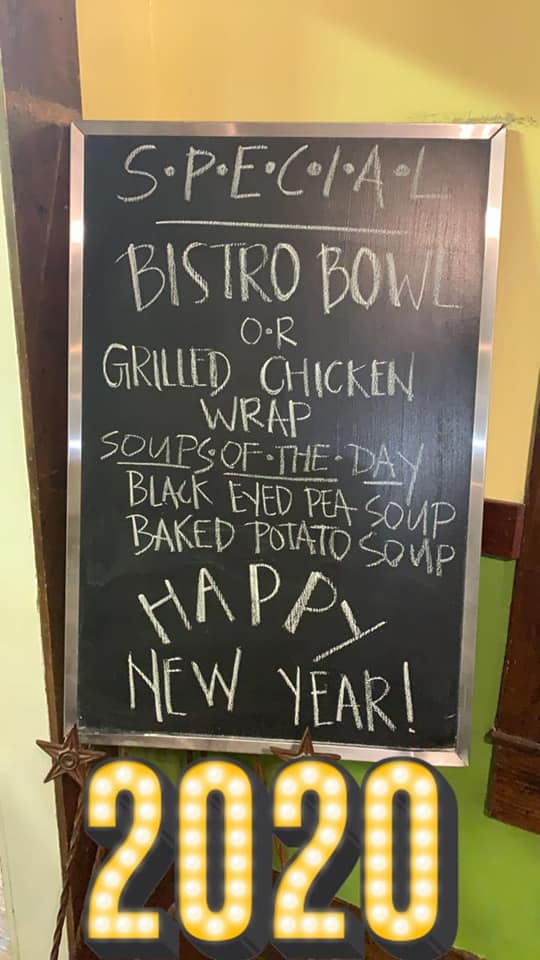 S·P·E·C·I·A·L
BISTRO BOWL
O·R
GRILLED CHICKEN
WRAP
SOUPS·OF·THE·DAY
BLACK EYED PEA SOUP
BAKED POTATO SOUP
HAPPY
NEW YEAR!
2020